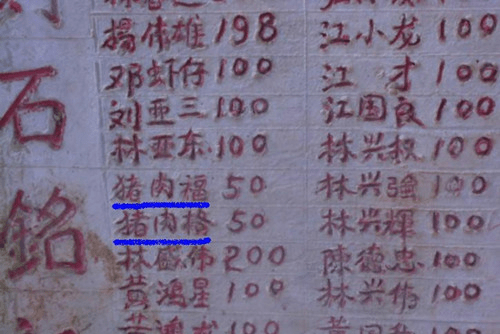 石
銘
楊伟雄 198 江小龙 100
邓虾仔 100 江 才 100
刘亚三 100 江国良 100
林亚东 100 林兴权 100
猪肉福 50 林兴強 100
猪肉 50 林兴輝 100
林盛伟 200 陳德忠 100
黄鸿星 100 林兴伟 100
100 100